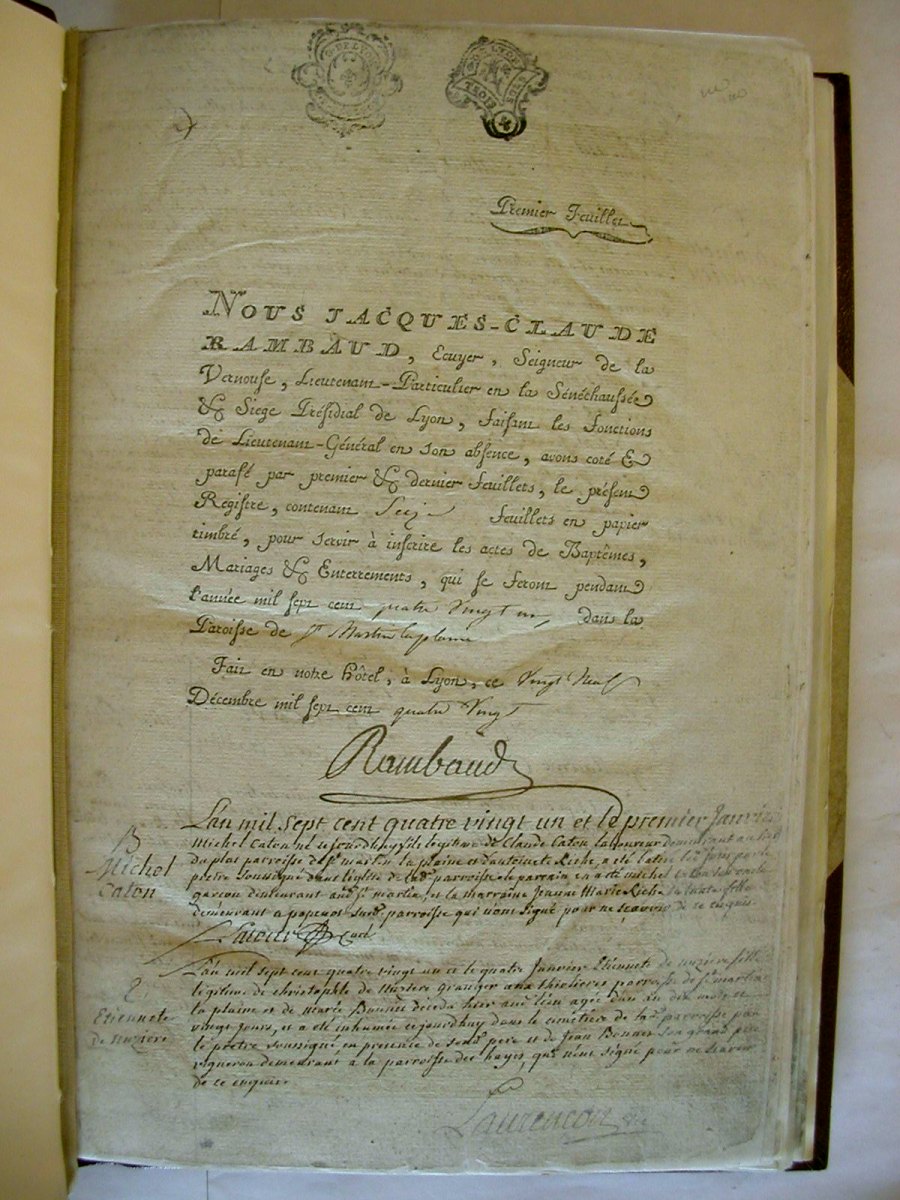 G. DE LYON
G. DE LYON
TROIS
SOLS
Premier Feuillet
NOUS JACQUES-CLAUDE
RAMBAUD, Ecuyer, Seigneur de la
Vernouse, Lieutenant-Particulier en la Sénéchaussée
& Siege Présidial de Lyon, faisant les fonctions
de Lieutenant-Général en son absence, avons coté &
parafé par premier & dernier feuillets, le présent
Registre, contenant Seize feuillets en papier
timbré, pour servir à inscrire les actes de Baptêmes,
Mariages & Enterrements, qui se feront pendant
l'année mil sept cent quatre Vingt un, dans la
Paroisse de St Martin la plaine
Fait en notre hôtel, à Lyon, ce Vingt Neuf
Décembre mil sept cent quatre Vingt
Rambaud
L'an mil sept cent quatre vingt un et le premier Janvier
B
Michel
Caton
Michel Caton né ce jourdhuy fils légitime de Claude Caton laboureur demeurant au
du plat parroisse de st martin la plaine et d'antoinete Riche, a eté
pretre soussigné dans l'eglise de lad. parroisse le parrain en a eté michel Caton son oncle
garçon demeurant aud. st martin, et la marraine Jeanne Marie Riche sa tante fille
demeurant a susd. parroisse qui n'ont signé pour ne sçavoir de ce enquis
curé
L'an mil sept cent quatre vingt un et le quatre Janvier Etiennete de mziere fille
légitime de christophle de granger parroisse de st martin
E
Etiennete
la plaine et de marie Bonnet décéda hier aud. lieu agée d'un an dix mois et
vingt jours, et a eté inhumée ce jourdhuy dans le cimetière de lad. parroisse par
le prêtre soussigné en presence de sond. pere et de jean Bonnet son grand pere
vigneron demeurant a la parroisse des hayes, qui n'ont signé pour ne sçavoir
de ce enquis